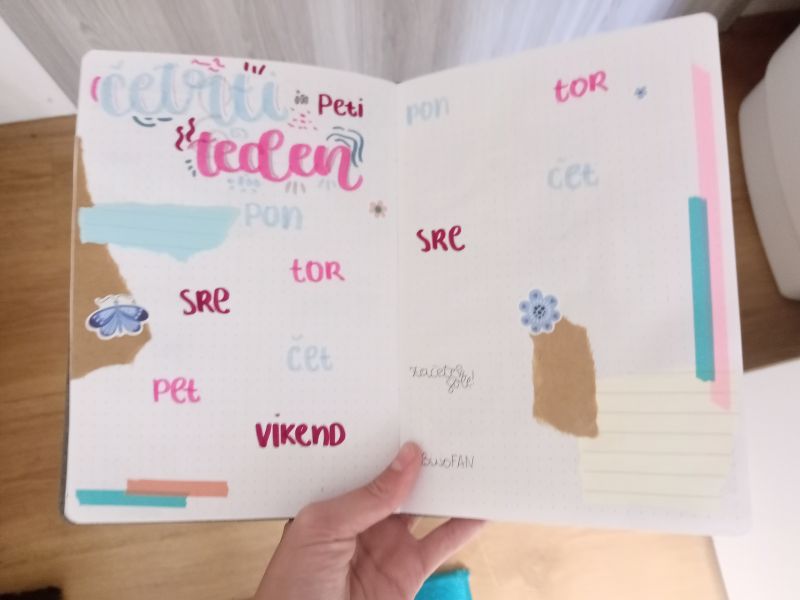 četrti
Peti
teden
pon
tor
sre
čet
pet
vikend
pon
tor
čet
sre